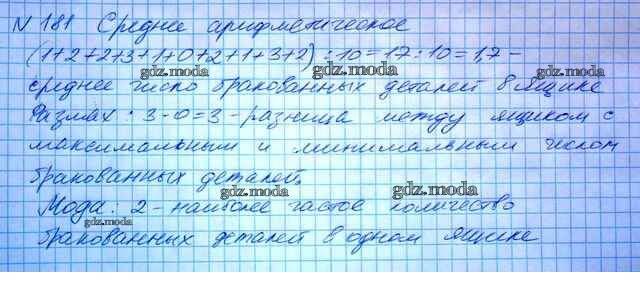 N 181 Среднее арифметическое
(1+2+2+3+1+0+2+1+3+2) : 10 = 17 : 10 = 1,7 -
gdz.moda gdz.moda gdz.moda
среднее число бракованных деталей в ящике
gdz.moda
Размах : 3-0=3 - разница между ящиком с
gdz.moda
максимальным и минимальным числом
gdz.moda
бракованных деталей.
gdz.moda gdz.moda
Мода: 2 - наиболее частое количество
gdz.moda
бракованных деталей в одном ящике